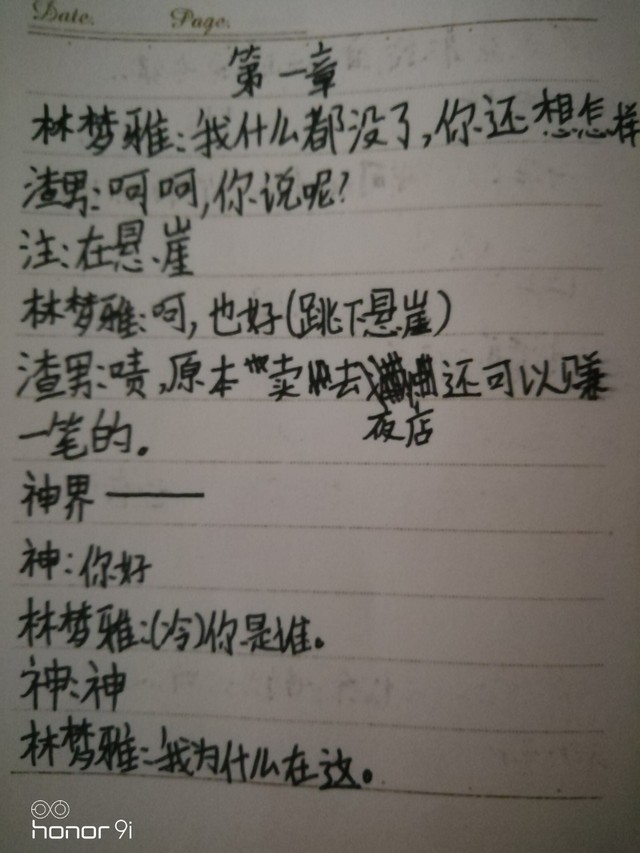 Date. Page.
第一章
林梦雅:我什么都没了,你还想怎样
渣男:呵呵,你说呢?
注:在悬崖
林梦雅:呵,也好(跳下悬崖)
渣男:啧,原本"卖"去还可以赚
夜店
一笔的。
神界——
神:你好
林梦雅:(冷)你是谁。
神:神
林梦雅:我为什么在这。
honor 9i